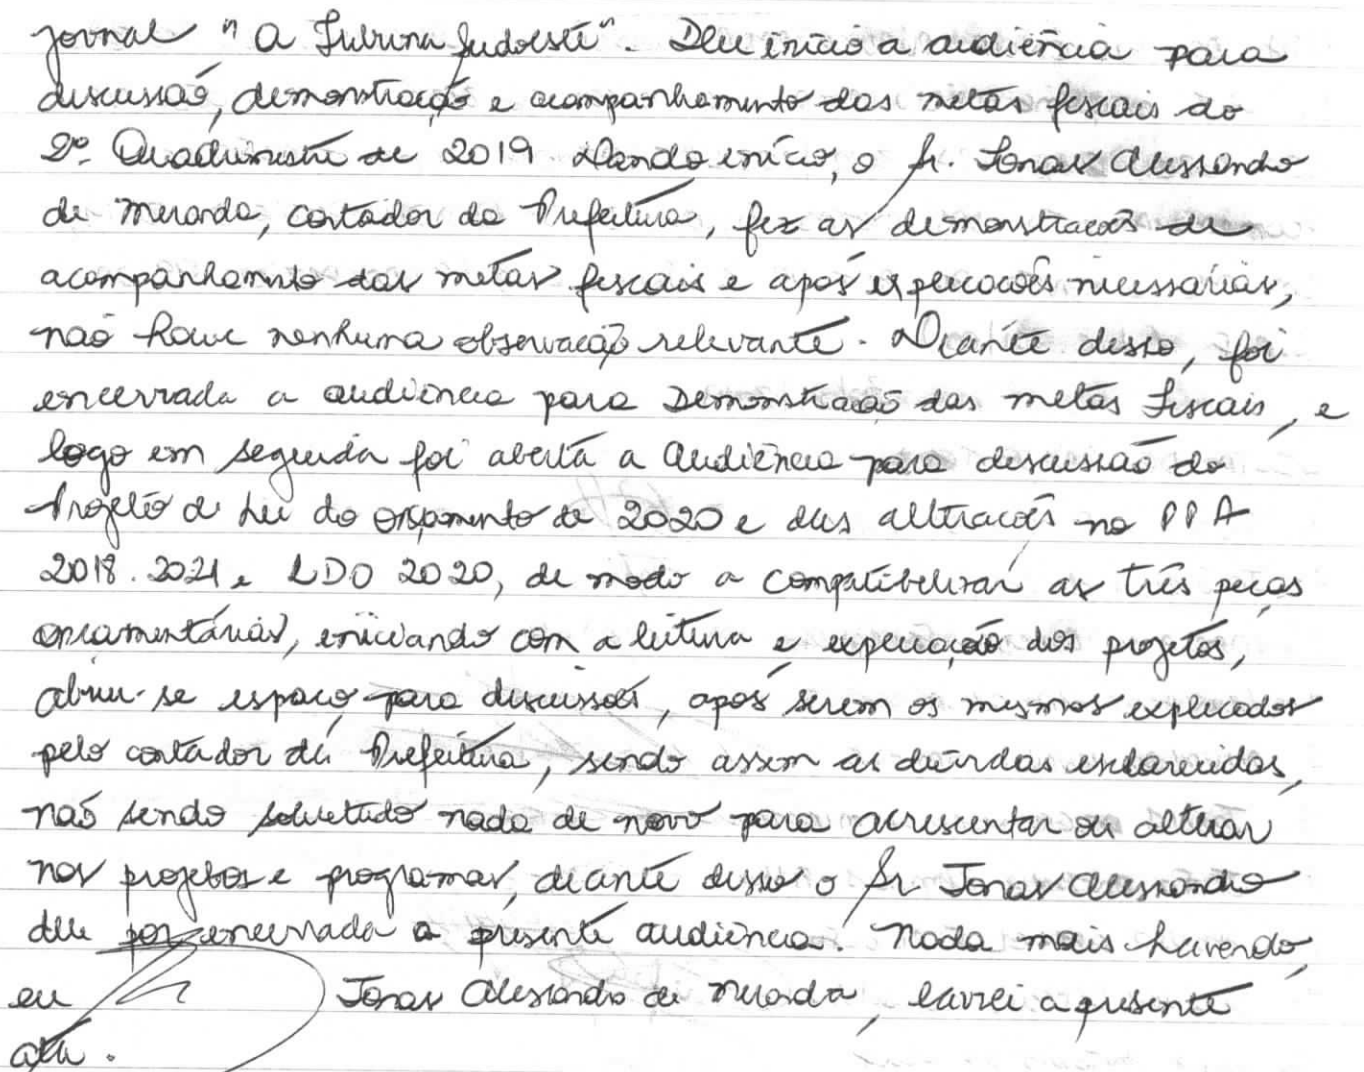 jornal "A Tribuna Sudoeste". Deu início a audiência para
discussão, demonstração e acompanhamento das metas fiscais do
2º Quadrimestre de 2019. Dando início, o Sr. Jonas Alessando
de Miranda, contador da Prefeitura, fez as demonstracões de
acompanhamento das metas fiscais e após explicacões necessárias,
não houve nenhuma observação relevante. Diante disso, foi
encerrada a audiência para Demonstração das metas Fiscais, e
logo em seguida foi aberta a Audiência para discussão do
Projeto de Lei do orçamento de 2020 e das alteracões no PPA
2018.2021 e LDO 2020, de modo a compatibilizar as três peças
orçamentárias, iniciando com a leitura e explicação dos projetos,
abriu-se espaço para discussões, após serem os mesmos explicados
pelo contador da Prefeitura, sendo assim as dúvidas esclarecidas,
não sendo solicitado nada de novo para acrescentar ou alterar
nos projetos e programas, diante disso o Sr Jonas Alessandro
deu por encerrada a presente audiência. Nada mais havendo,
eu Jonas Alessandro de Miranda, lavrei a presente
ata.